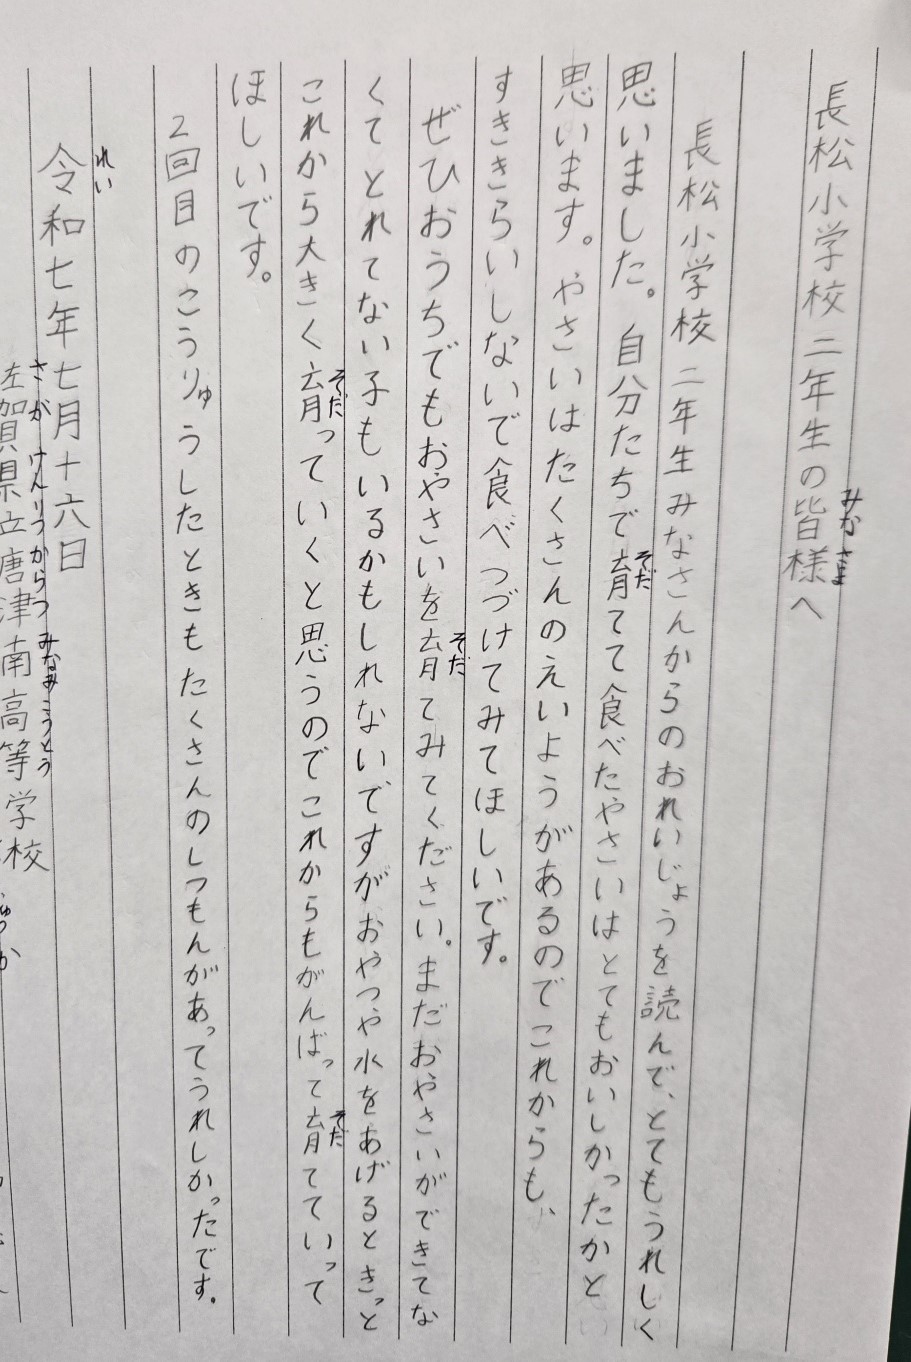 長松小学校 二年生の皆様へ
長松小学校 二年生 みなさんからのおれいじょうを読んで、とてもうれしく
思いました。自分たちで育てて食べたやさいはとてもおいしかったかと
思います。やさいはたくさんのえいようがあるのでこれからも、
すききらいしないで食べつづけてみてほしいです。
ぜひおうちでもおやさいを育てみてください。まだおやさいができてな
くてとれてない子もいるかもしれないですがおやつや水をあげるときっと
これから大きく育っていくと思うのでこれからもがんばって育てていって
ほしいです。
2回目のこうりゅうしたときもたくさんのしつもんがあってうれしかったです。
令和七年七月十六日
佐賀県立唐津南高等学校